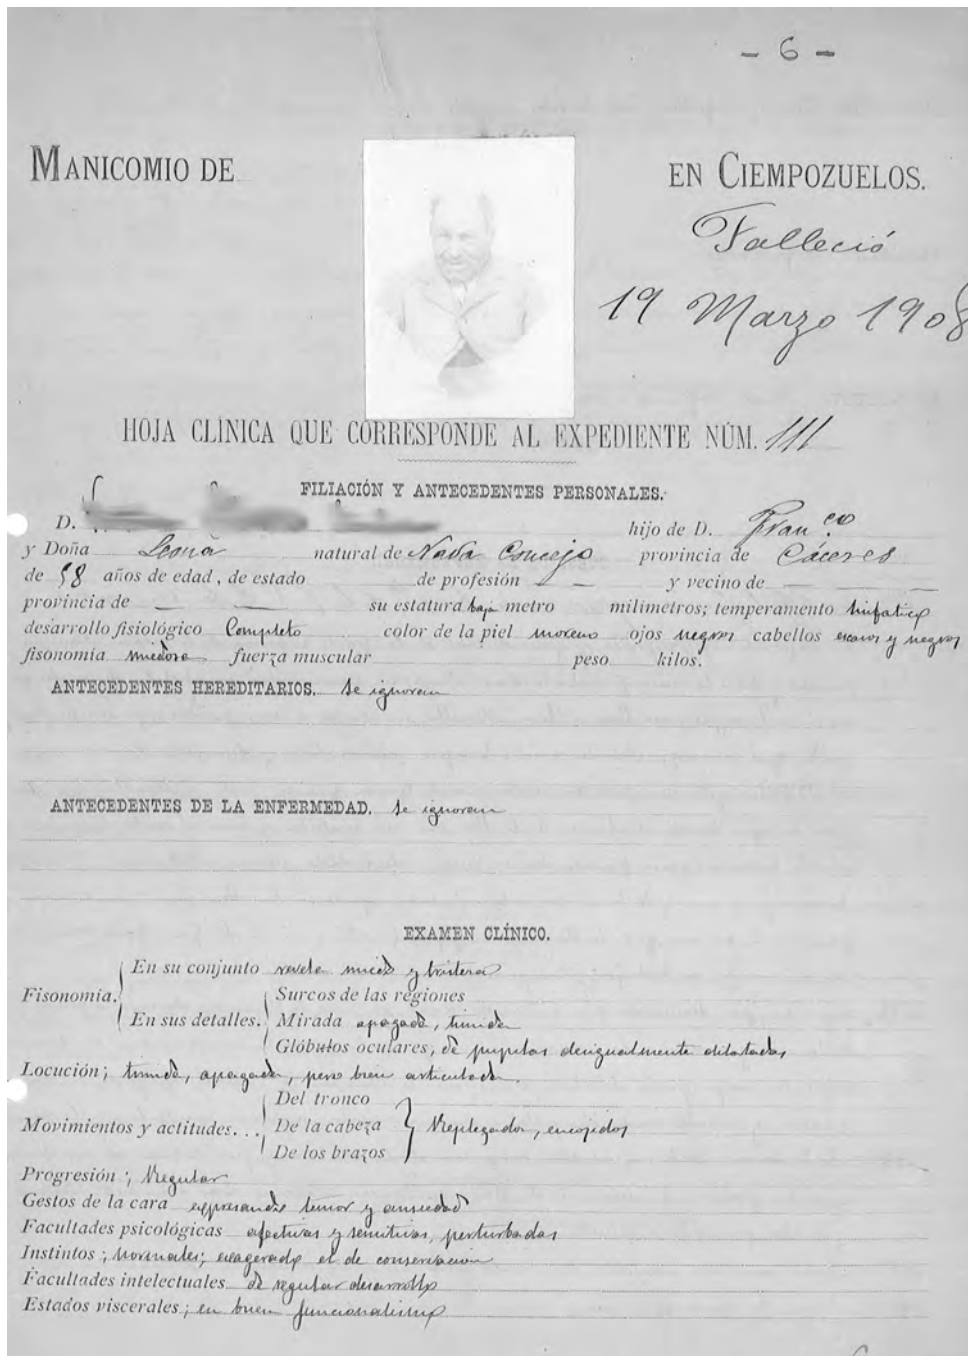 - 6 -
MANICOMIO DE EN CIEMPOZUELOS.
Falleció
19 Marzo 1908
HOJA CLÍNICA QUE CORRESPONDE AL EXPEDIENTE NÚM. 111
FILIACIÓN Y ANTECEDENTES PERSONALES.
D. hijo de D. Fran.co
y Doña natural de Nava Concejo provincia de Cáceres
de 58 años de edad, de estado de profesión — y vecino de —
provincia de — — su estatura baja metro milimetros; temperamento linfatico
desarrollo fisiológico Completo color de la piel moreno ojos negros cabellos escasos y negros
fisonomía miedosa fuerza muscular peso kilos.
ANTECEDENTES HEREDITARIOS. Se ignoran
ANTECEDENTES DE LA ENFERMEDAD. Se ignoran
EXAMEN CLÍNICO.
Fisonomía. En su conjunto revela miedo y tristeza
En sus detalles. Surcos de las regiones
Mirada apagada, timida
Glóbulos oculares, de pupilas desigualmente dilatadas
Locución; timida, apagada, pero bien articulada.
Movimientos y actitudes... Del tronco
De la cabeza Replegados, encojidos
De los brazos
Progresión; Regular
Gestos de la cara expresando temor y ansiedad
Facultades psicológicas afectivas y sensitivas, perturbadas
Instintos; normales; exagerado el de conservacion
Facultades intelectuales de regular desarrollo
Estados viscerales; en buen funcionalismo